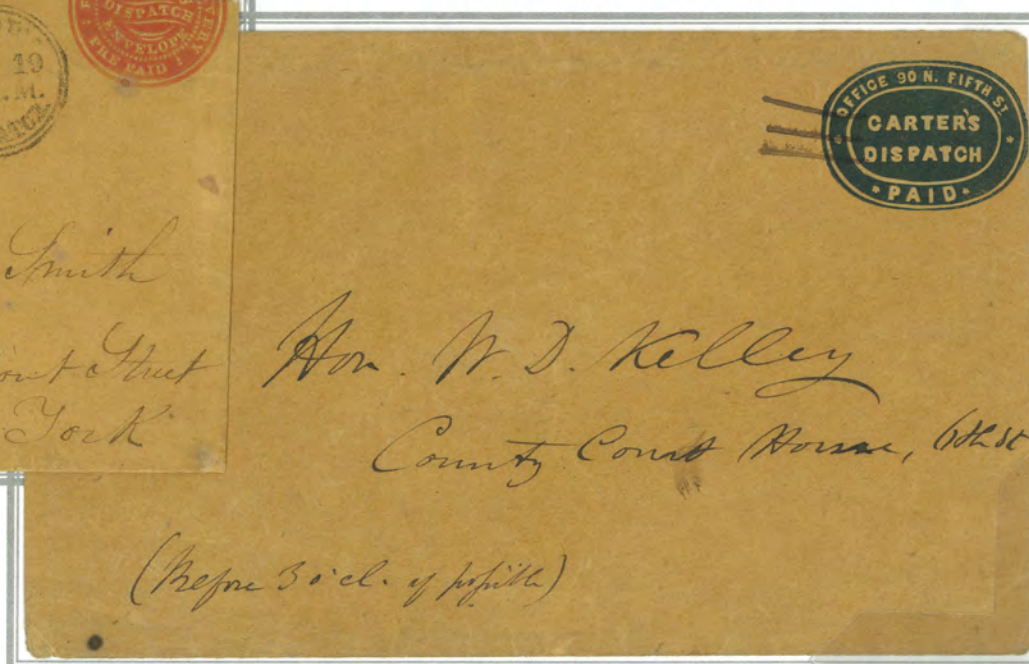 DISPATCH
ENVELOPE
PRE PAID
19
.M.
Smith
Street
York
OFFICE 90 N. FIFTH ST.
CARTER'S
DISPATCH
PAID
Hon. W. D. Kelley
County Court House, 6th St
(Before 3 o'cl. if possible)